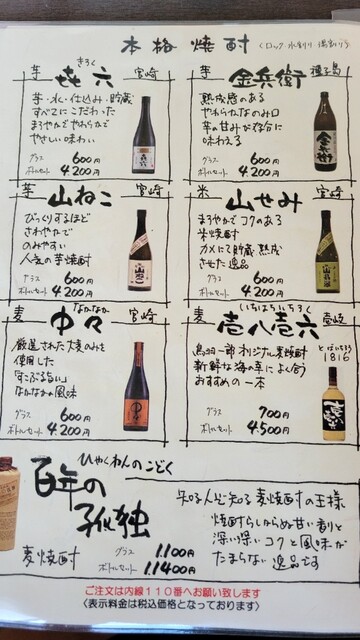 本格焼酎 (ロック・水割り・湯割り)
芋 㐂六 きろく 宮崎
芋・水・仕込み・貯蔵
すべてにこだわった
まろやかでやわらかで
やさしい味わい
グラス 600円
ボトルセット 4.200円
芋 金兵衛 種子島
熟成感のある
やわらかなのみ口
芋の甘みが存分に
味わえる
グラス 600円
ボトルセット 4.200円
芋 山ねこ 宮崎
びっくりするほど
さわやかで
のみやすい
人気の芋焼酎
グラス 600円
ボトルセット 4.200円
米 山せみ 宮崎
まろやかでコクのある
米焼酎
カメにて貯蔵、熟成
させた逸品
グラス 600円
ボトルセット 4.200円
麦 中々 なかなか 宮崎
厳選された大麦のみを
使用した
「すこぶるいい」
なかなかの風味
グラス 600円
ボトルセット 4.200円
麦 壱八壱六 いちはちいちろく 壱岐
鳥羽一郎オリジナル麦焼酎 とばいちろう 1816
新鮮な海の幸によく合う
おすすめの一本
グラス 700円
ボトルセット 4.500円
百年の孤独 ひゃくねんのこどく
麦焼酎
グラス 1.100円
ボトルセット 11.400円
知る人ぞ知る麦焼酎の王様
焼酎らしからぬ甘い香りと
深い深いコクと風味が
たまらない逸品です
ご注文は内線110番へお願い致します
〈表示料金は税込価格となっております〉